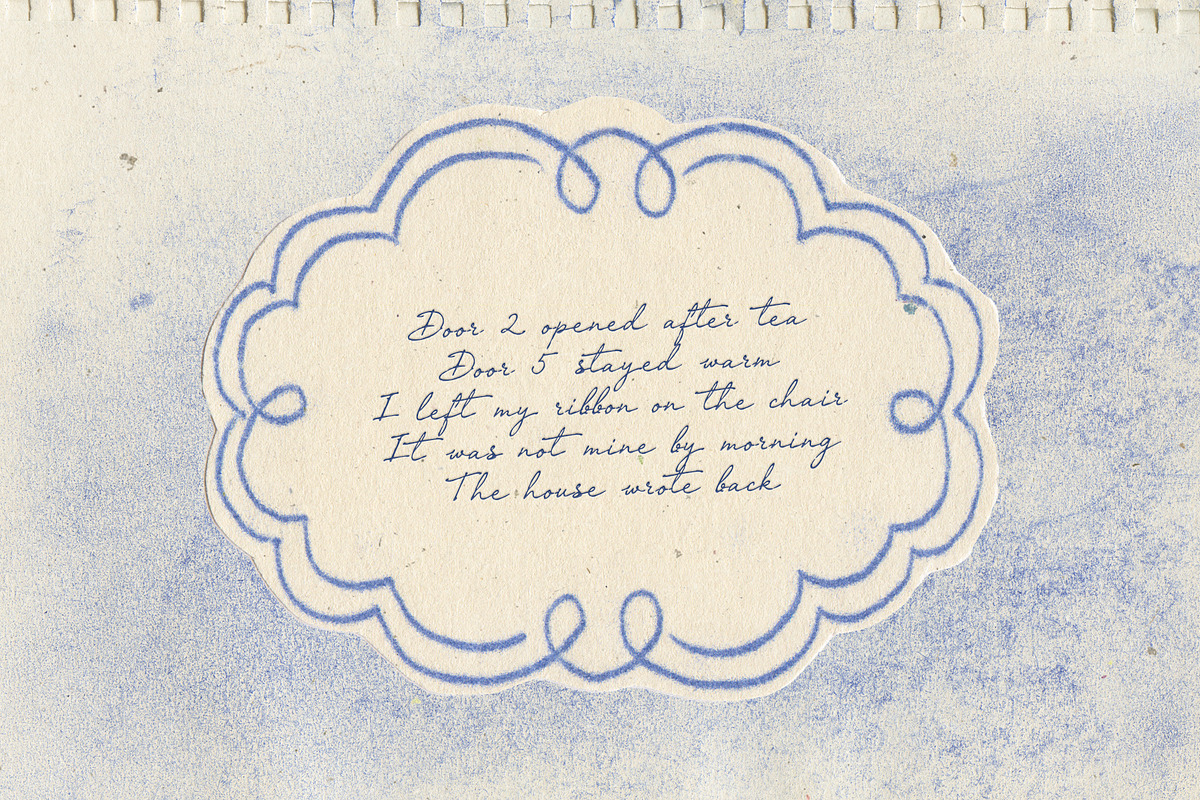 Door 2 opened after tea
Door 5 stayed warm
I left my ribbon on the chair
It was not mine by morning
The house wrote back